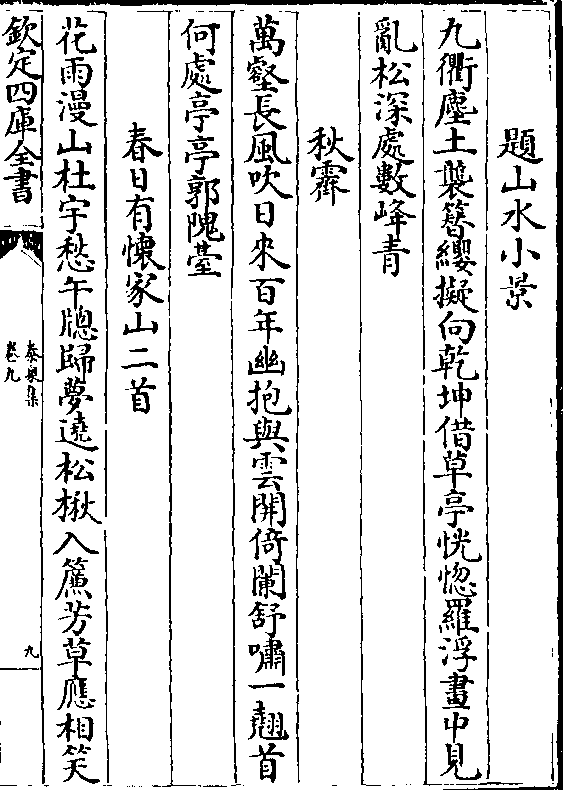 題山水小景
九衢塵土襲簪纓擬向乾坤借草亭恍惚羅浮畫中見
亂松深處數峰青
秋霽
萬壑長風吹日來百年幽抱與雲開倚闌舒嘯一翹首
何處亭亭郭隗臺
春日有懷家山二首
花雨漫山杜宇愁午牕歸夢遶松楸入簾芳草應相笑
欽定四庫全書
泰泉集
卷九
九